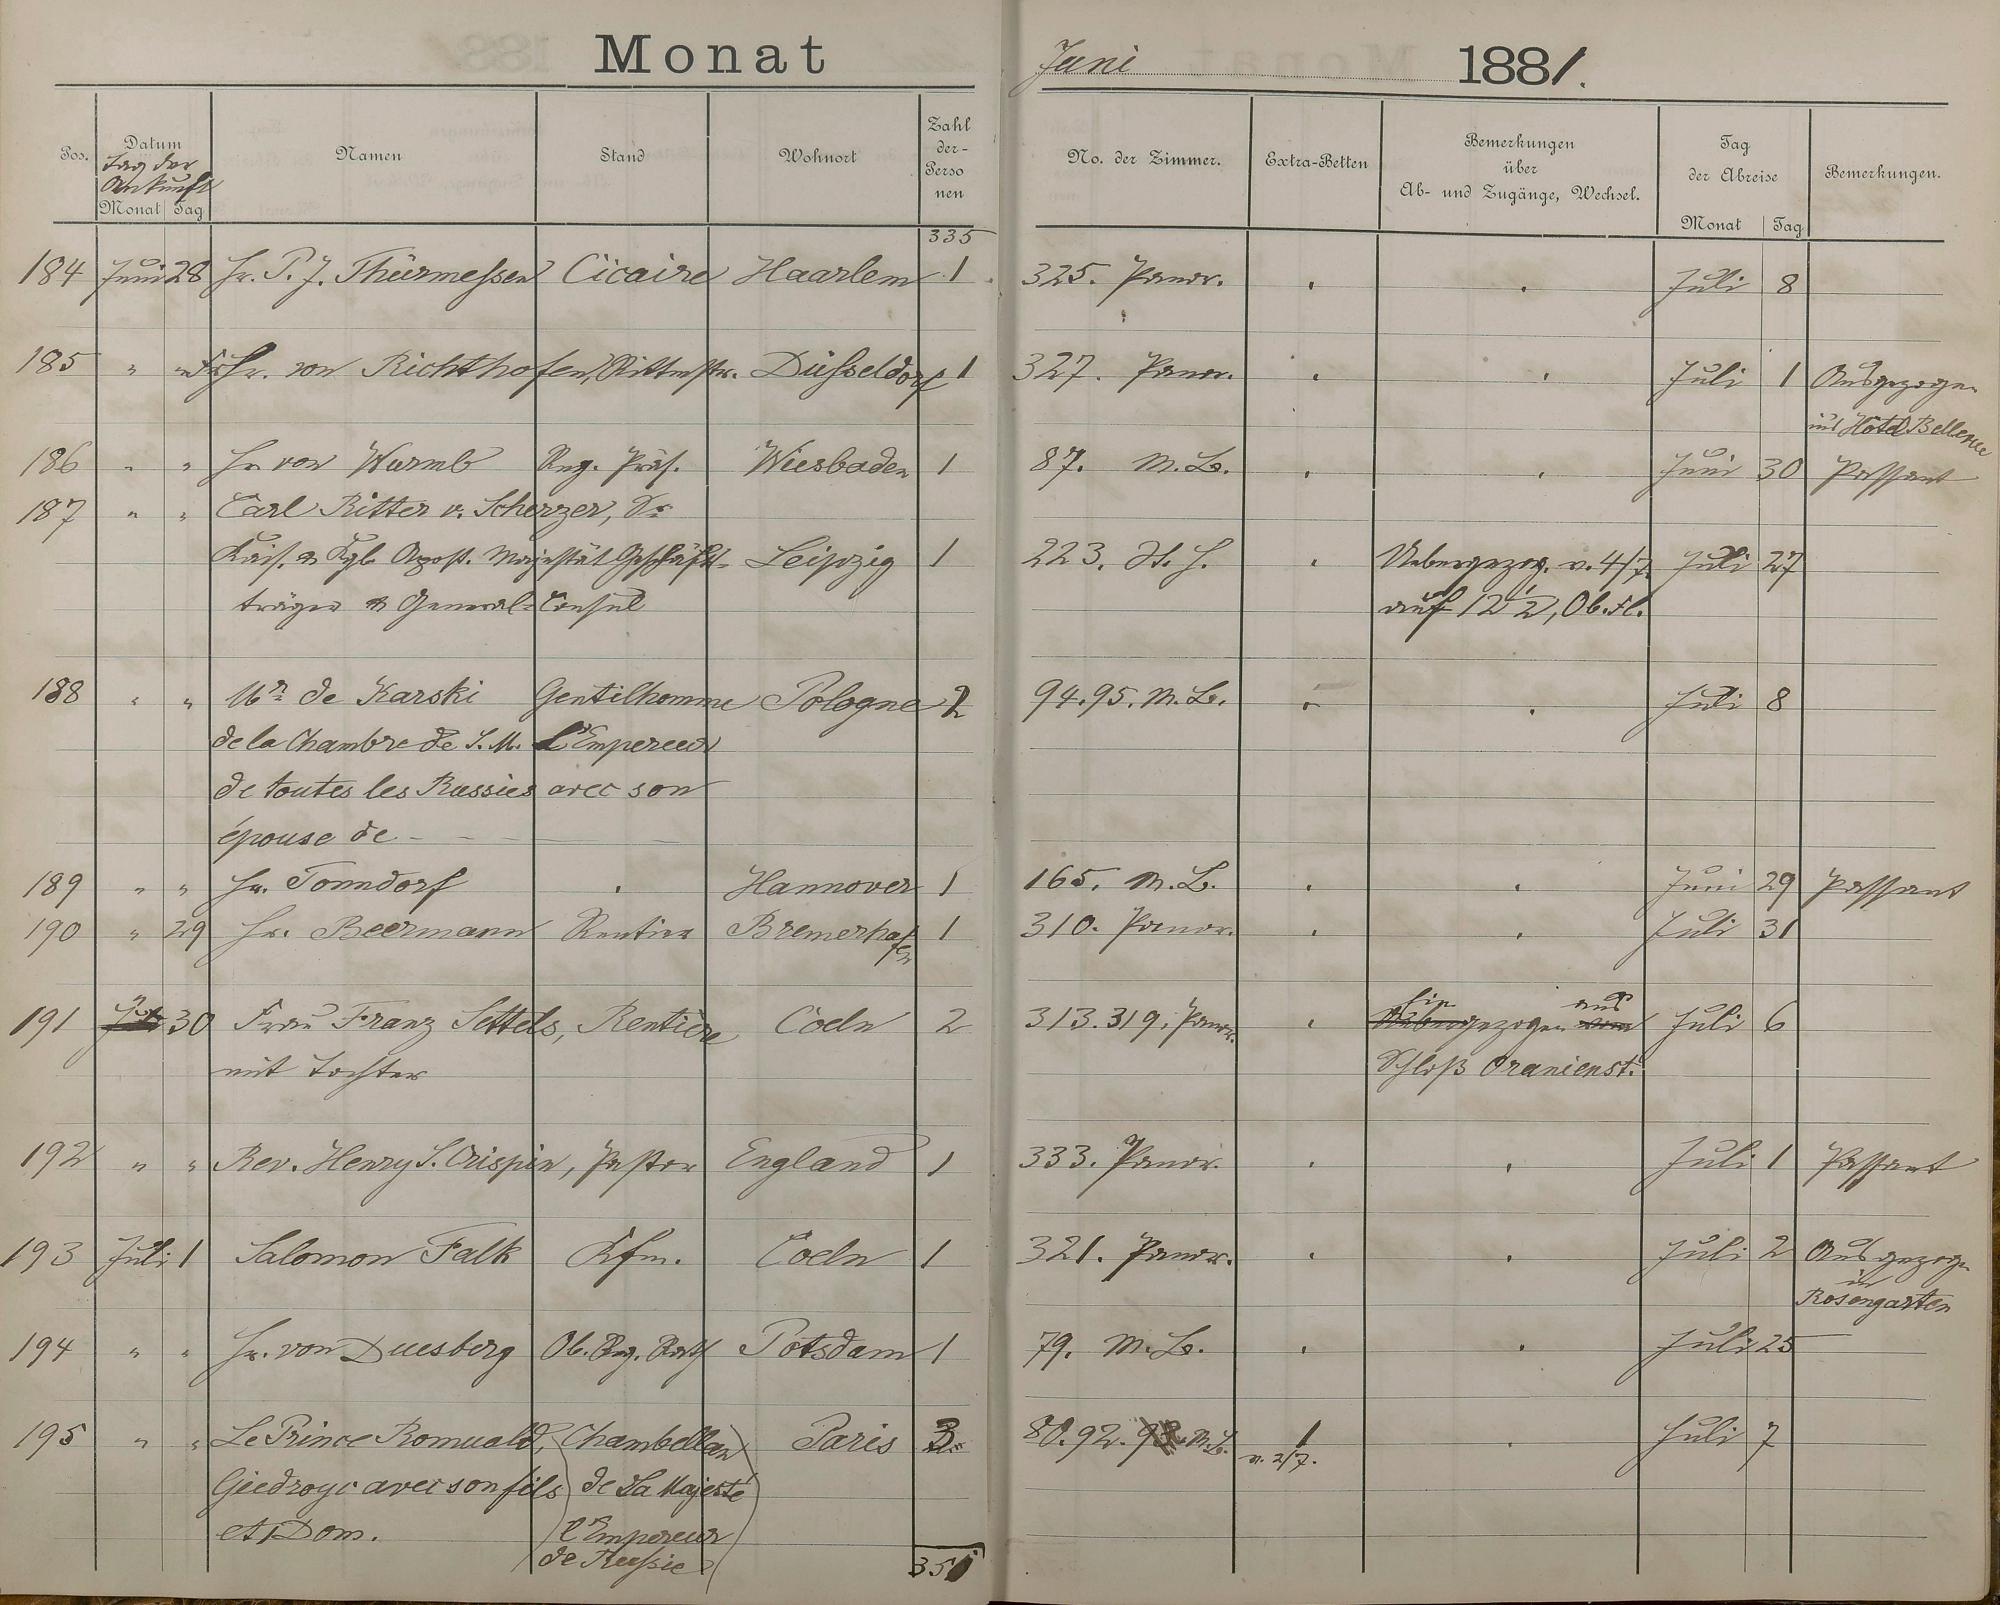 Monat
Juni 1881.
Pos. Datum Namen Stand Wohnort Zahl der- Perso nen
Tag der Ankunft
Monat Tag
No. der Zimmer. Extra-Betten Bemerkungen über Ab- und Zugänge, Wechsel. Tag der Abreise Bemerkungen.
Monat Tag
335
184 Juni 28 Hr. P. J. Thürmeßen Cicaire Haarlem 1 325. Panor. " " Juli 8
185 " " Frhr. von Richthofen, Rittmstr. Düßeldorf 1 327. Panor. " " Juli 1 Ausgezogen
ins Hôtel Bellevue
186 " " Hr. von Wurmb Reg. Präs. Wiesbaden 1 87. M. B. " " Juni 30 Passant
187 " " Carl Ritter v. Scherzer, Dr.
Kais. & Kgl. Apost. Majestät Geschäfts- Leipzig 1 223. St. H. " Uebergezog. v. 4/7. Juli 27
träger & General-Consul auf 122, Ob. Fl.
188 " " Mr. de Karski Gentilhomme Pologne 2 94.95. M. B. " " Juli 8
de la Chambre de S. M. L'Empereur
de toutes les Russies avec son
épouse de - - - -
189 " " Hr. Tonndorf " Hannover 1 165. M. B. " " Juni 29 Passant
190 " 29 Hr. Beermann Rentier Bremerhafen 1 310. Panor. " " Juli 31
191 " 30 Frau Franz Settels, Rentière Coeln 2 313.319. Panor. " gezogen aus Juli 6
mit Tochter Schloß Oranienst.
192 " " Rev. Henry S. Crispin, Pastor England 1 333. Panor. " " Juli 1 Passant
193 Juli 1 Salomon Falk Kfm. Coeln 1 321. Panor. " " Juli 2 Ausgezogen
in
Rosengarten
194 " " Hr. von Duesberg Ob. Reg. Rath Potsdam 1 79. M. B. " " Juli 25
195 " " Le Prince Romuald, (Chambellan) Paris 3 80.92. M. B. 1 " Juli 7
v. 2/7.
Giedroyc avec son fils (de Sa Majesté)
et Dom. (l'Empereur)
(de Rußie)
351